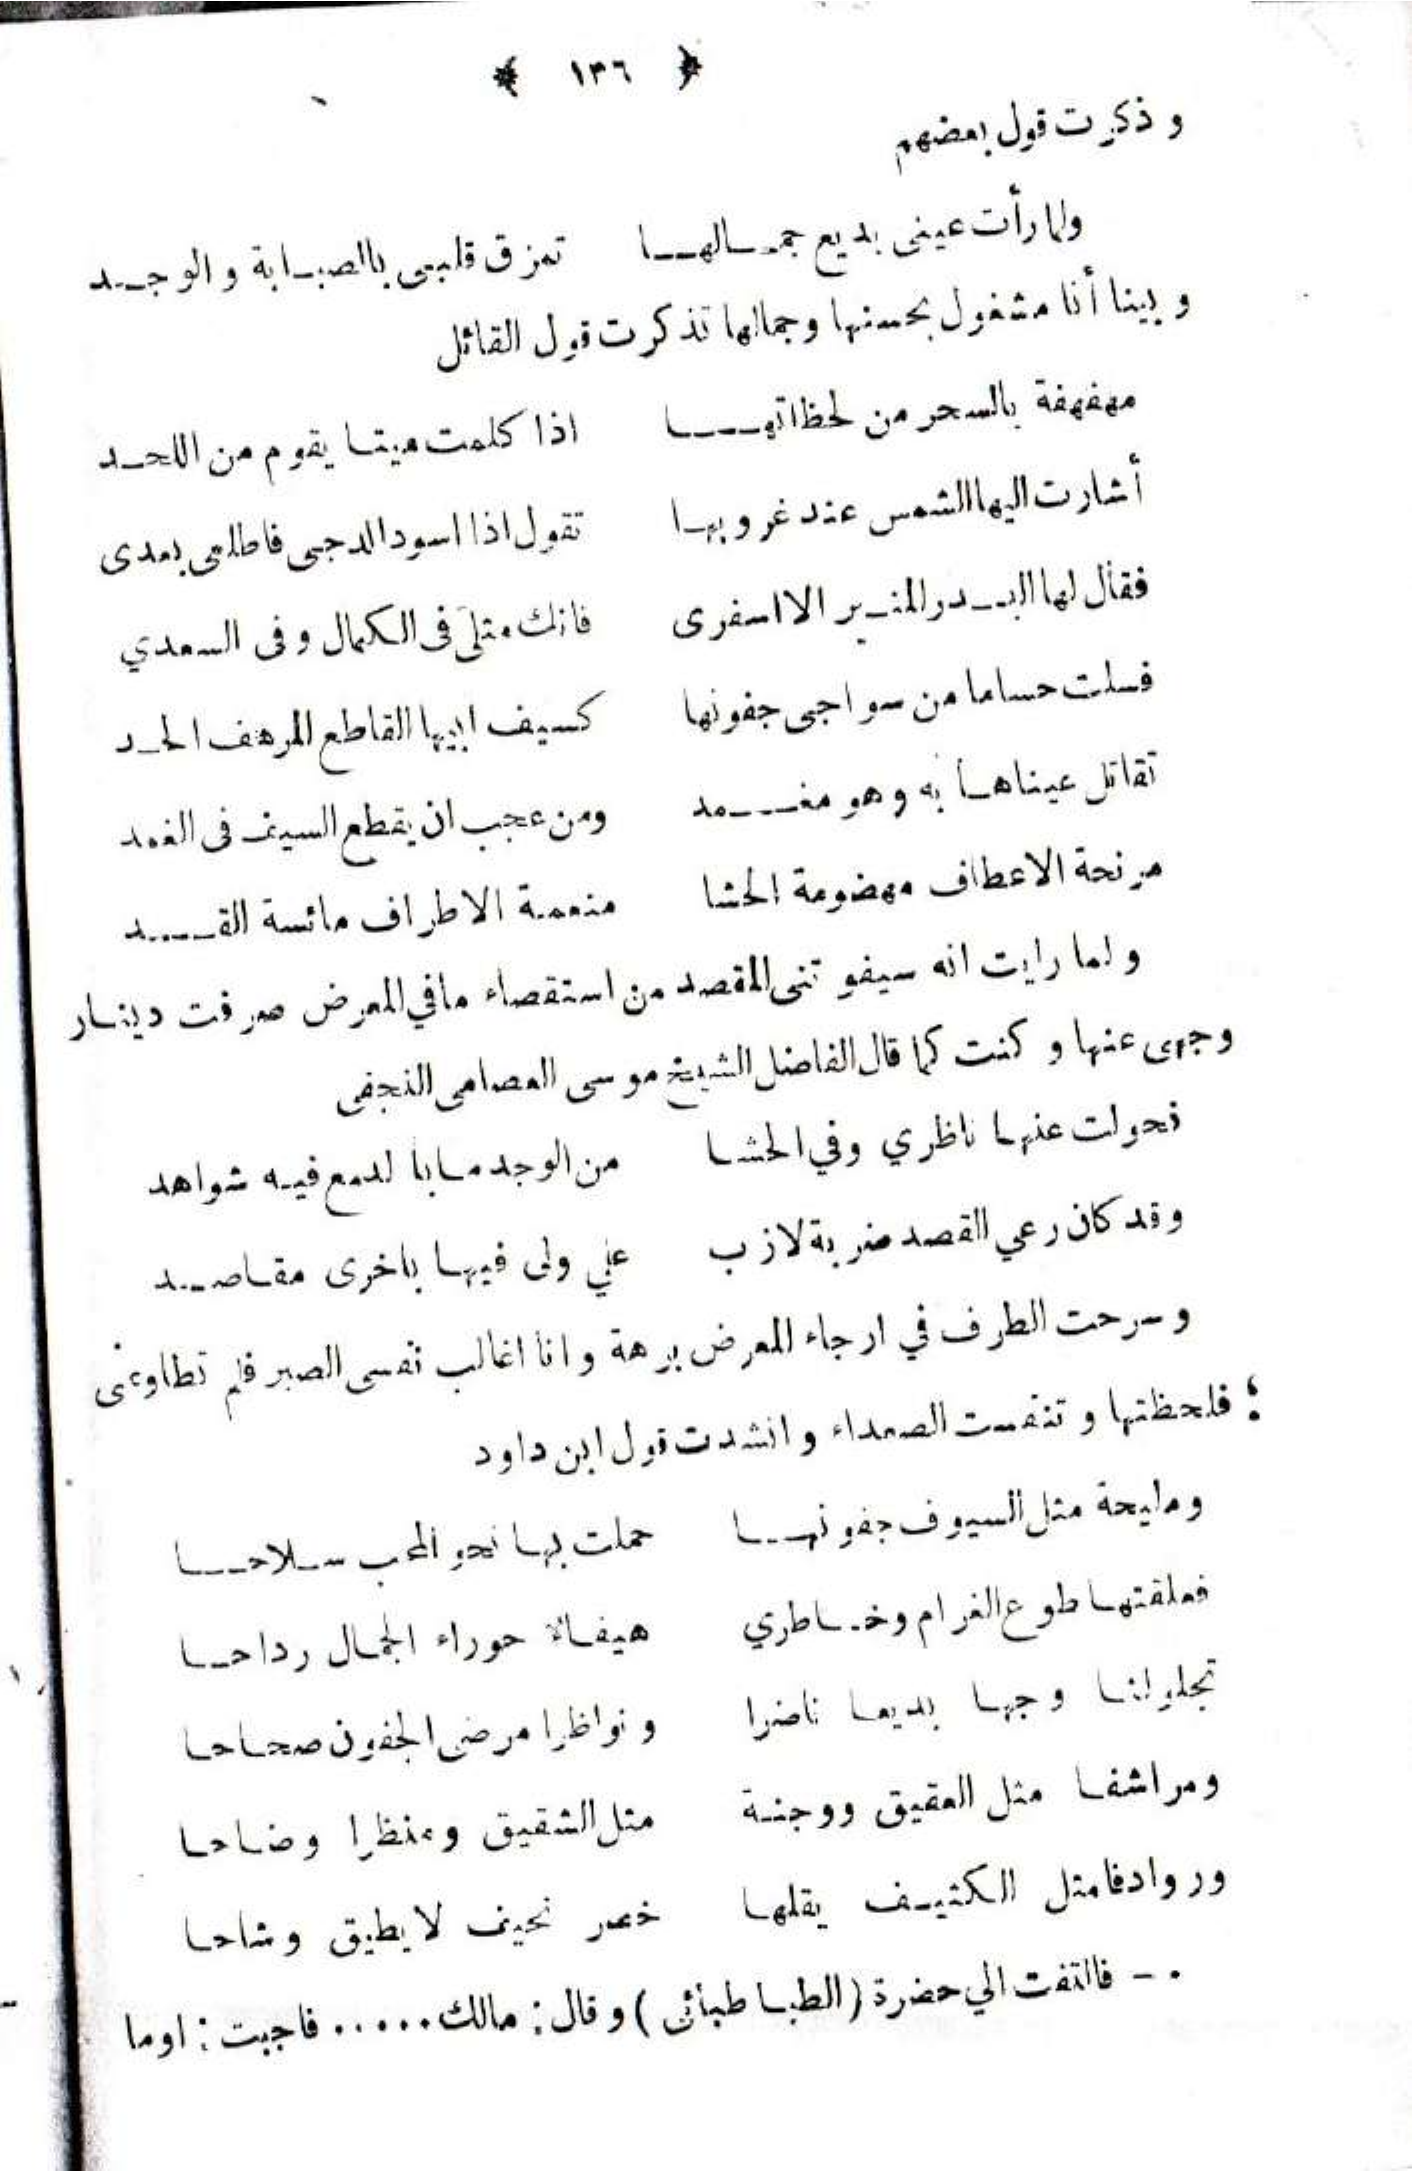 ﴿ ١٣٦ ﴾
و ذكرت قول بعضهم
ولما رأت عيني بديع جمالها تمزق قلبي بالصبابة والوجد
و بينا أنا مشغول بحسنها وجمالها تذكرت قول القائل
مهفهفة بالسحر من لحظاتها اذا كلمت ميتا يقوم من اللحد
أشارت اليها الشمس عند غروبها تقول اذا اسود الدجى فاطلعي بعدى
فقال لها البدر المنير الا اسفرى فانك مثلي فى الكمال وفى السعدي
فسلت حساما من سواجى جفونها كسيف ابيها القاطع المرهف الحد
تقاتل عيناها به وهو مغمد ومن عجب ان يقطع السيف فى الغمد
مرنحة الاعطاف مهضومة الحشا منعمة الاطراف مائسة القد
و لما رايت انه سيفو تنى المقصد من استقصاء مافي المعرض صرفت دينار
وجهى عنها و كنت كما قال الفاضل الشيخ موسى العصامى النجفى
تحولت عنها ناظري وفي الحشا من الوجد ما بالدمع فيه شواهد
وقد كان رعي القصد ضربة لازب علي ولى فيها باخرى مقاصد
و سرحت الطرف في ارجاء المعرض برهة و انا اغالب نفسى الصبر فلم تطاوعنى
؛ فلحظتها و تنفست الصعداء و انشدت قول ابن داود
ومليحة مثل السيوف جفونها حملت بها نحو المحب سلاحا
فعلقتها طوع الغرام وخاطري هيفاء حوراء الجمال رداحا
تجلو لنا وجها بديعا ناضرا و نواظرا مرضى الجفون صحاحا
ومراشفا مثل العقيق ووجنة مثل الشقيق ومنظرا وضاحا
وروادفا مثل الكثيف يقلها خصر نحيف لا يطيق وشاحا
٠ – فالتفت الي حضرة (الطباطبائى) و قال: مالك ..... فاجبت: اوما